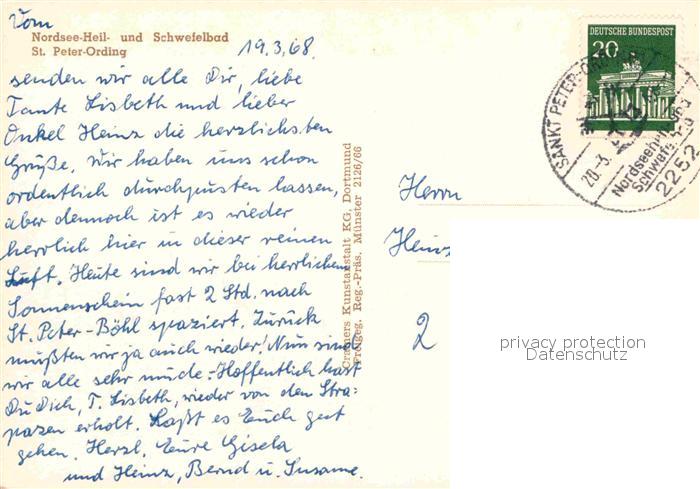 Vom
Nordsee-Heil- und Schwefelbad
St. Peter-Ording
19.3.68.
senden wir alle Dir, liebe
Tante Lisbeth und lieber
Onkel Heinz die herzlichsten
Grüße. Wir haben uns schon
ordentlich durchpusten lassen,
aber dennoch ist es wieder
herrlich hier in dieser reinen
Luft. Heute sind wir bei herrlichem
Sonnenschein fast 2 Std. nach
St. Peter-Böhl spaziert. Zurück
mußten wir ja auch wieder! Nun sind
wir alle sehr müde. Hoffentlich hast
Du Dich, T. Lisbeth, wieder von den Stra-
pazen erholt. Laßt es Euch gut
gehen. Herzl. Eure Gisela
und Heinz, Bernd u. Susanne.
Cramers Kunstanstalt KG, Dortmund
Freigeg. Reg.-Präs. Münster 2126/66
DEUTSCHE BUNDESPOST
SANKT PETER-ORDING
20.-3.
Nordseeheil- und
Schwefelbad
2252
Herrn
Heinz
2
privacy protection
Datenschutz